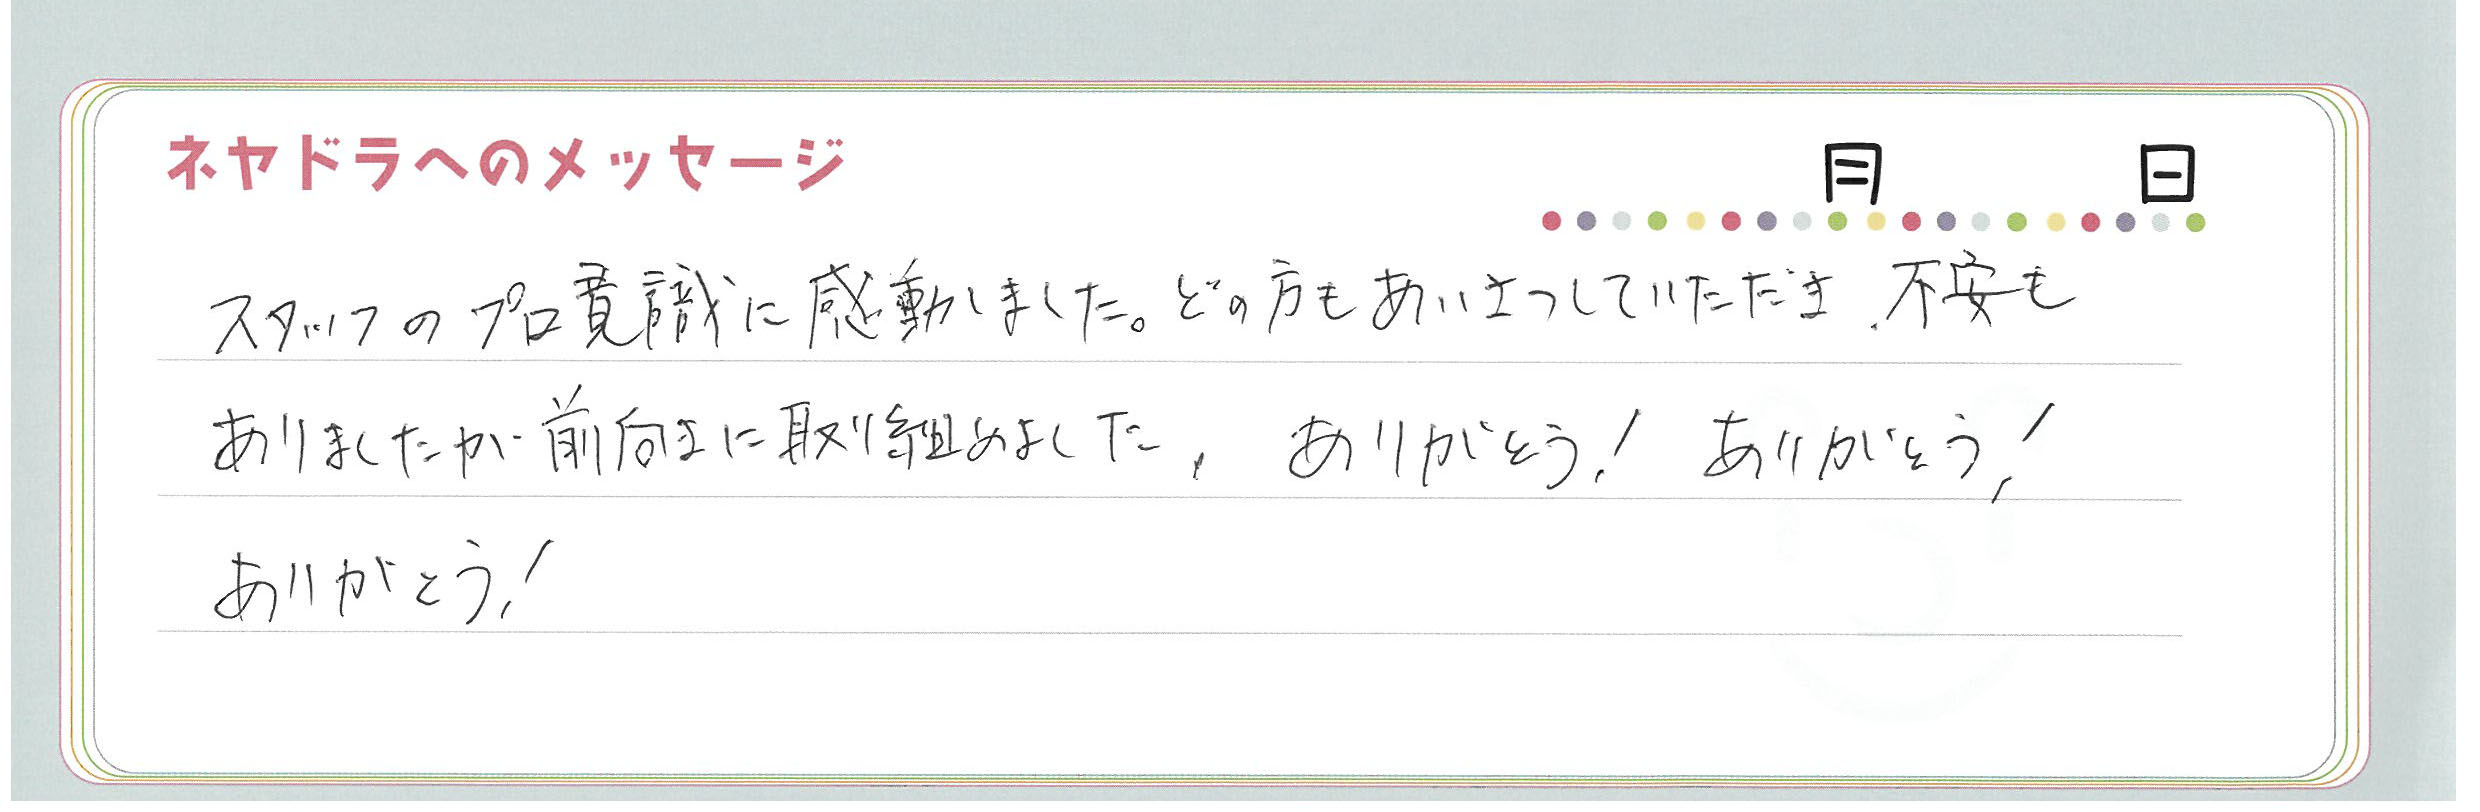 ネヤドラへのメッセージ
月 日
スタッフのプロ意識に感動しました。どの方もあいさつしていただき、不安も
ありましたが前向きに取り組めました。ありがとう！ ありがとう！
ありがとう！